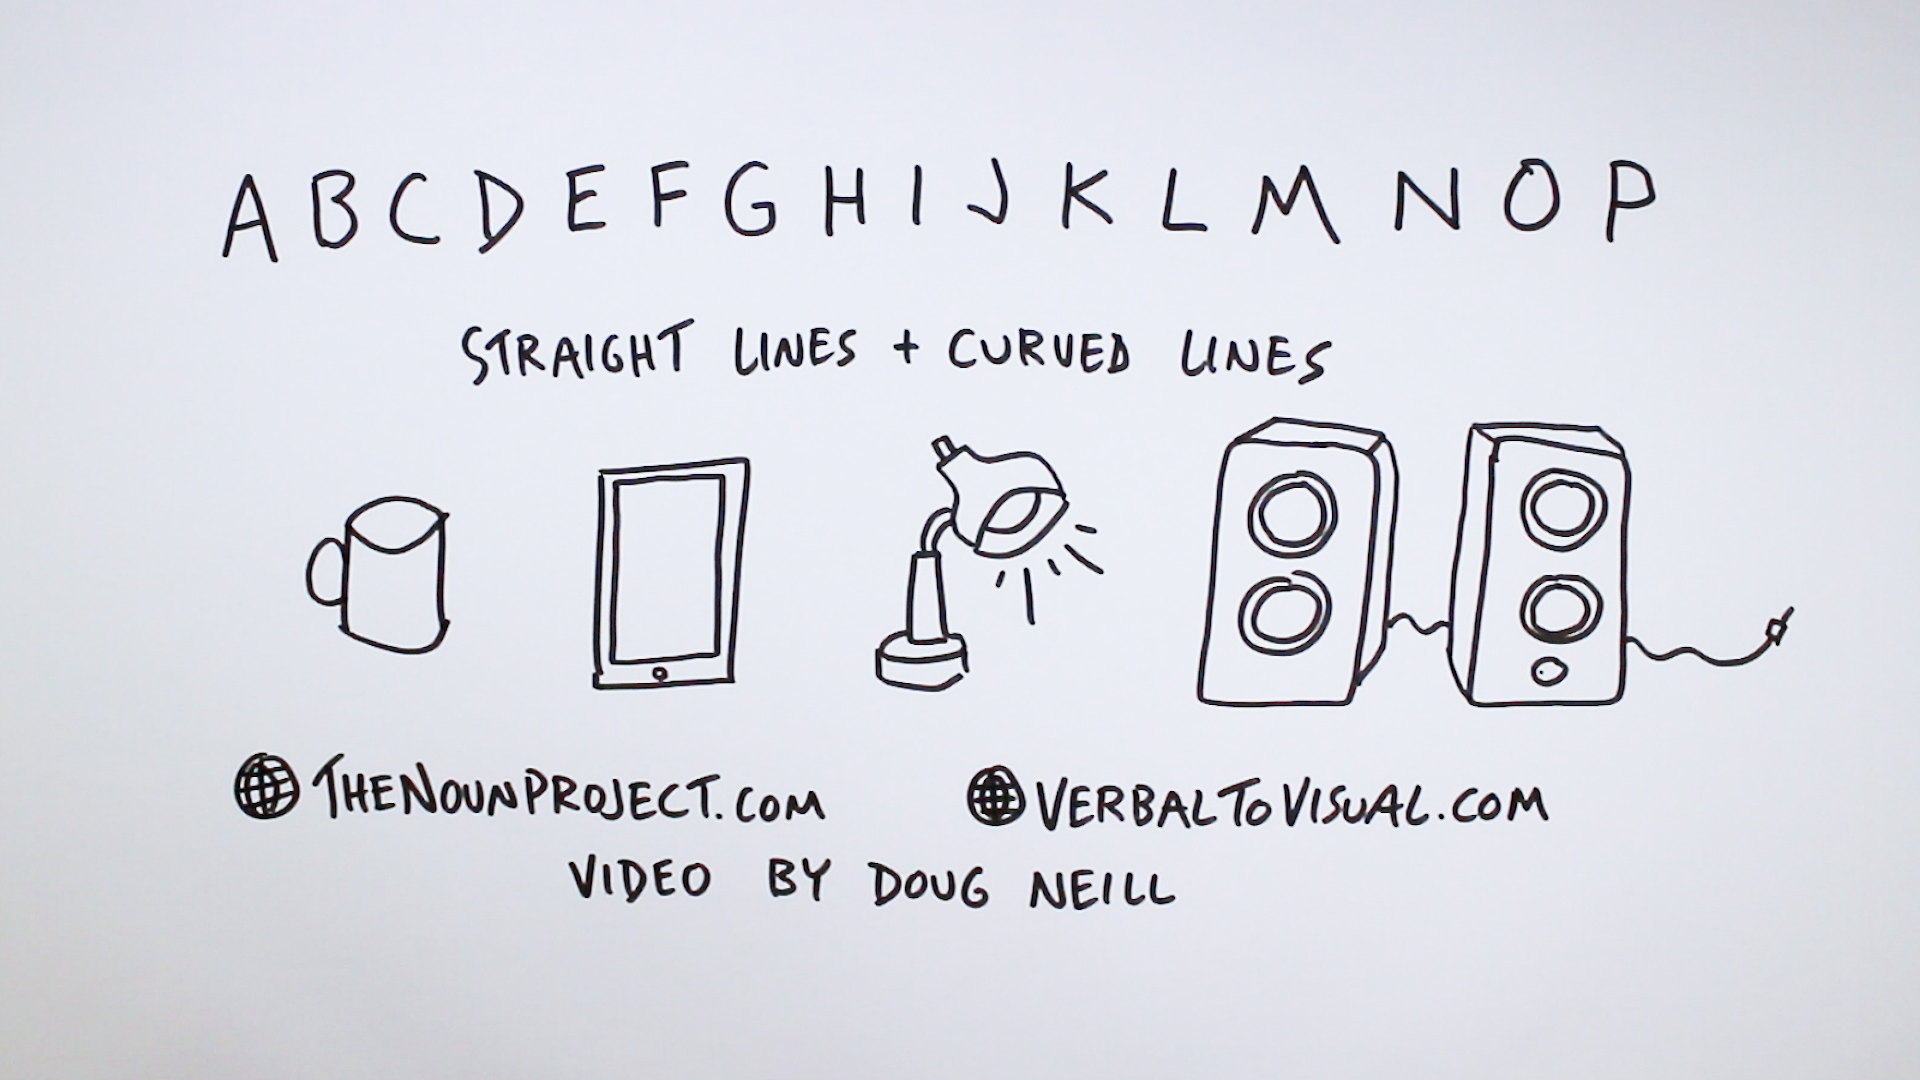 A B C D E F G H I J K L M N O P
STRAIGHT LINES + CURVED LINES
THENOUNPROJECT.COM
VERBALTOVISUAL.COM
VIDEO BY DOUG NEILL